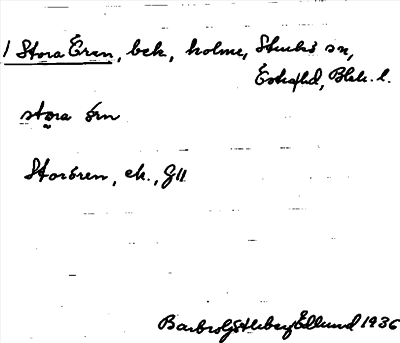 1 Stora Ören, bek, holme, Sturkö sn,
Östra hd, Blek. l.
stora örn
Storören, ek., GH
Barbro Götlberg Edlund 1936